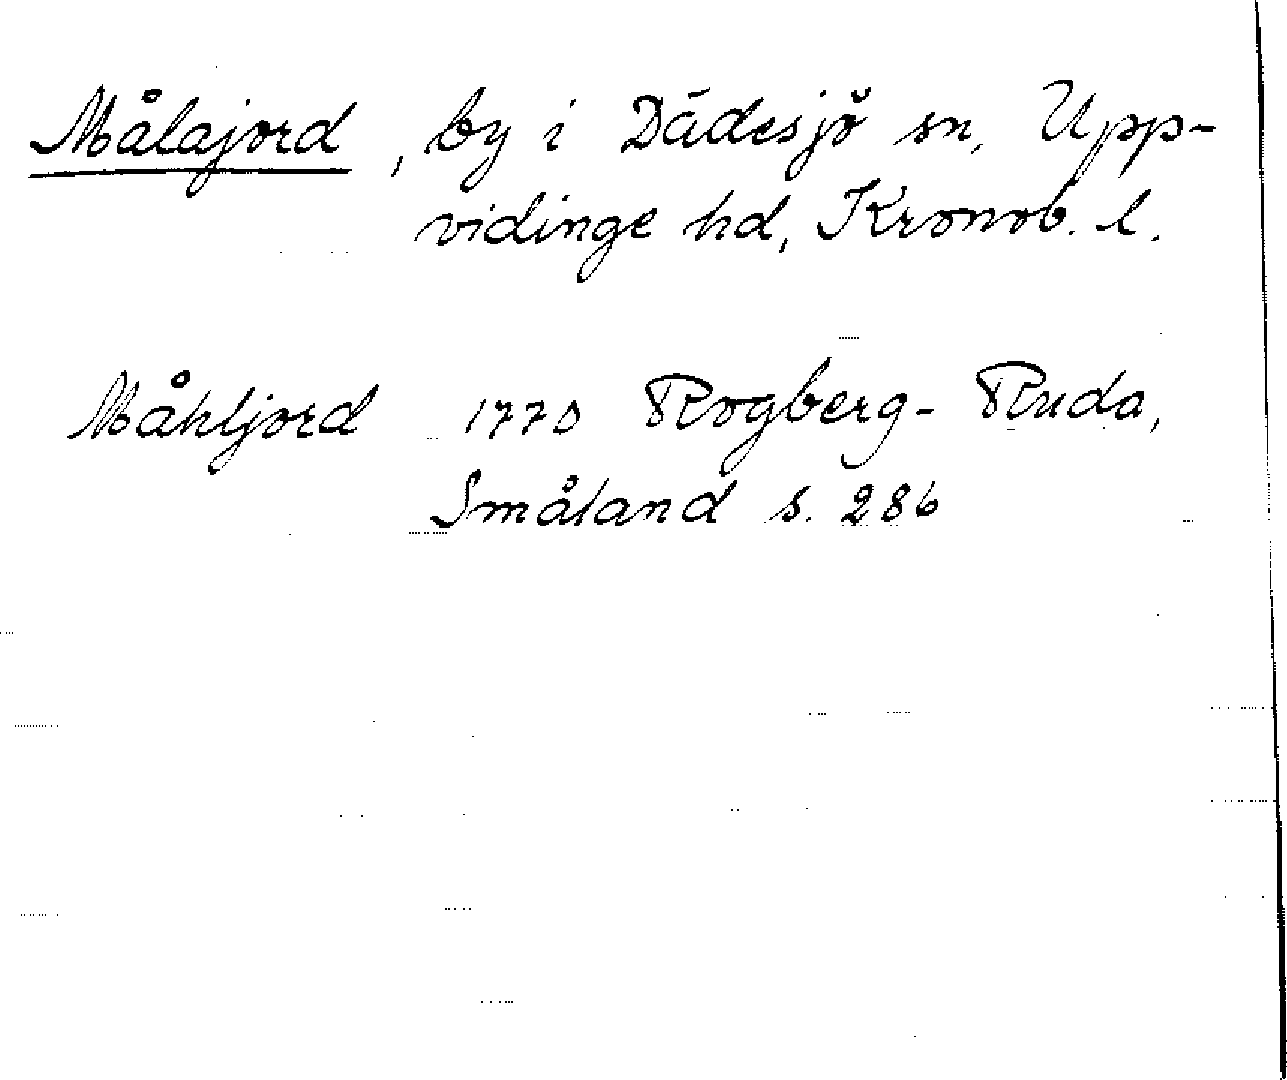 Målajord, by i Dädesjö sn, Upp-
vidinge hd, Kronob. l.
Måhljord 1770 Rogberg-Ruda,
Småland s. 286